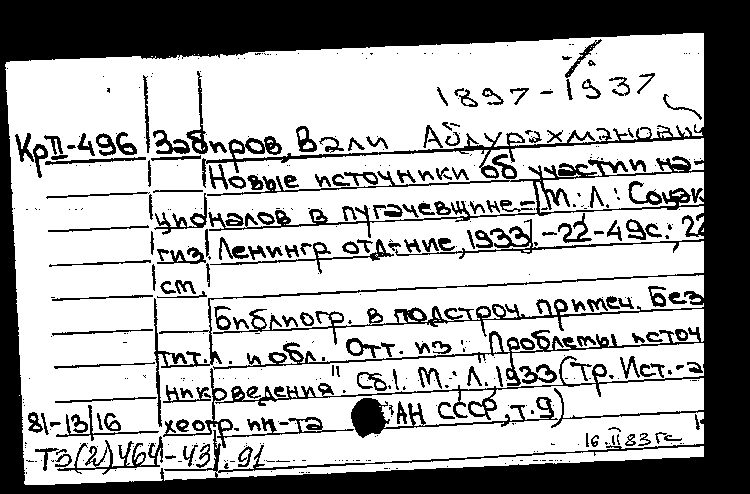 1897-1937
КрII-496 Забиров, Вали Абдурахманович
Новые источники об участии на-
ционалов в пугачевщине.-[М.; Л.: Соцэк
гиз. Ленингр. отд-ние, 1933].-22-49с.; 22
см.
Библиогр. в подстроч. примеч. Без
тит.л. и обл. Отт. из: "Проблемы источ
никоведения". Сб.1. М.; Л., 1933 (Тр. Ист.-а
81-13/16 хеогр. ин-та АН СССР, т.9)
16.II 83 гс
Т3(2)464-431.91